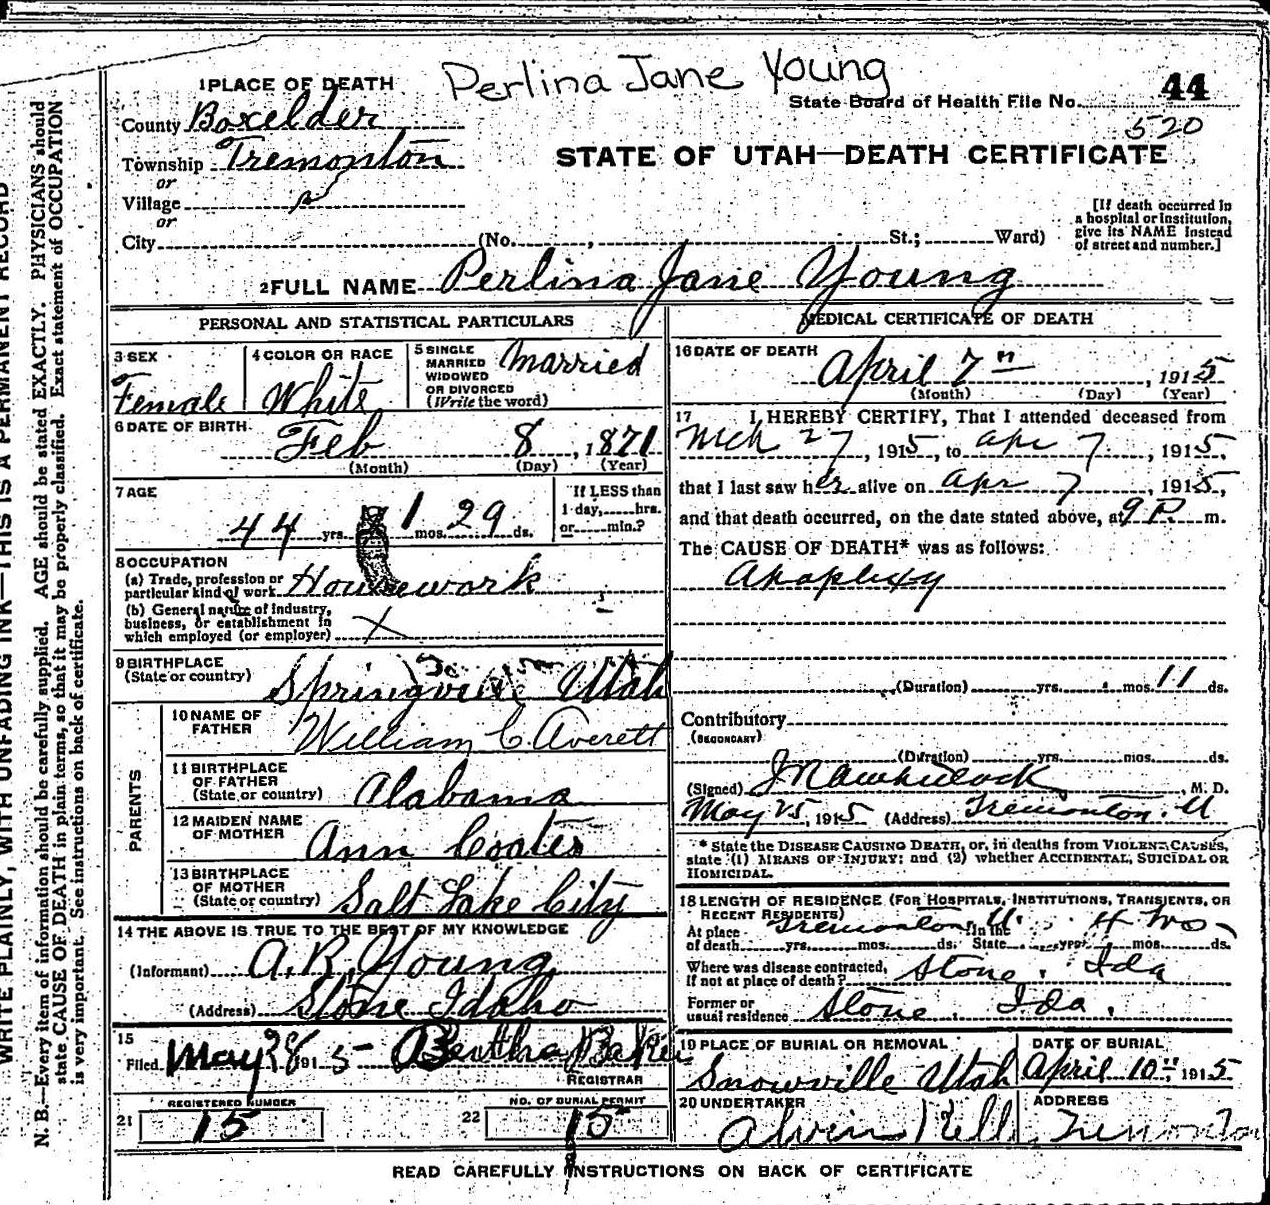 Perlina Jane Young
1 PLACE OF DEATH
State Board of Health File No. 44
County Boxelder
520
Township Tremonton
STATE OF UTAH—DEATH CERTIFICATE
or
Village
or
City (No. , St.; Ward)
[If death occurred in a hospital or institution, give its NAME instead of street and number.]
2 FULL NAME Perlina Jane Young
PERSONAL AND STATISTICAL PARTICULARS
3 SEX
Female
4 COLOR OR RACE
White
5 SINGLE
MARRIED
WIDOWED
OR DIVORCED
(Write the word)
Married
6 DATE OF BIRTH
Feb 8, 1871
(Month) (Day) (Year)
7 AGE
44 yrs. 1 mos. 29 ds.
If LESS than
1 day, hrs.
or min.?
8 OCCUPATION
(a) Trade, profession or
particular kind of work Housework
(b) General nature of industry,
business, or establishment in
which employed (or employer) X
9 BIRTHPLACE
(State or country) Springville Utah
PARENTS
10 NAME OF
FATHER William C. Averett
11 BIRTHPLACE
OF FATHER
(State or country) Alabama
12 MAIDEN NAME
OF MOTHER Ann Coates
13 BIRTHPLACE
OF MOTHER
(State or country) Salt Lake City
14 THE ABOVE IS TRUE TO THE BEST OF MY KNOWLEDGE
(Informant) A. R. Young
(Address) Stone Idaho
15
Filed May 28 1915 Bertha Baker
REGISTRAR
REGISTERED NUMBER
21 15
NO. OF BURIAL PERMIT
22 15
MEDICAL CERTIFICATE OF DEATH
16 DATE OF DEATH
April 7th, 1915
(Month) (Day) (Year)
17 I HEREBY CERTIFY, That I attended deceased from
Mch 27, 1915, to Apr 7, 1915,
that I last saw her alive on Apr 7, 1915,
and that death occurred, on the date stated above, at 9 P. m.
The CAUSE OF DEATH* was as follows:
Apoplexy
(Duration) yrs. mos. 11 ds.
Contributory
(SECONDARY)
(Duration) yrs. mos. ds.
(Signed) M. D.
May 25, 1915 (Address) Tremonton. U
* State the DISEASE CAUSING DEATH, or, in deaths from VIOLENT CAUSES,
state (1) MEANS OF INJURY; and (2) whether ACCIDENTAL, SUICIDAL OR
HOMICIDAL.
18 LENGTH OF RESIDENCE (FOR HOSPITALS, INSTITUTIONS, TRANSIENTS, OR
RECENT RESIDENTS)
At place Tremonton, U. In the
of death yrs. mos. ds. State yrs. 4 mos. ds.
Where was disease contracted,
if not at place of death? Stone, Ida
Former or
usual residence Stone, Ida.
19 PLACE OF BURIAL OR REMOVAL
Snowville Utah
DATE OF BURIAL
April 10th 1915
20 UNDERTAKER
Alvin Kell
ADDRESS
Tremonton
READ CAREFULLY INSTRUCTIONS ON BACK OF CERTIFICATE
WRITE PLAINLY, WITH UNFADING INK—THIS IS A PERMANENT RECORD
N. B.—Every item of information should be carefully supplied. AGE should be stated EXACTLY. PHYSICIANS should
state CAUSE OF DEATH in plain terms, so that it may be properly classified. Exact statement of OCCUPATION
is very important. See instructions on back of certificate.